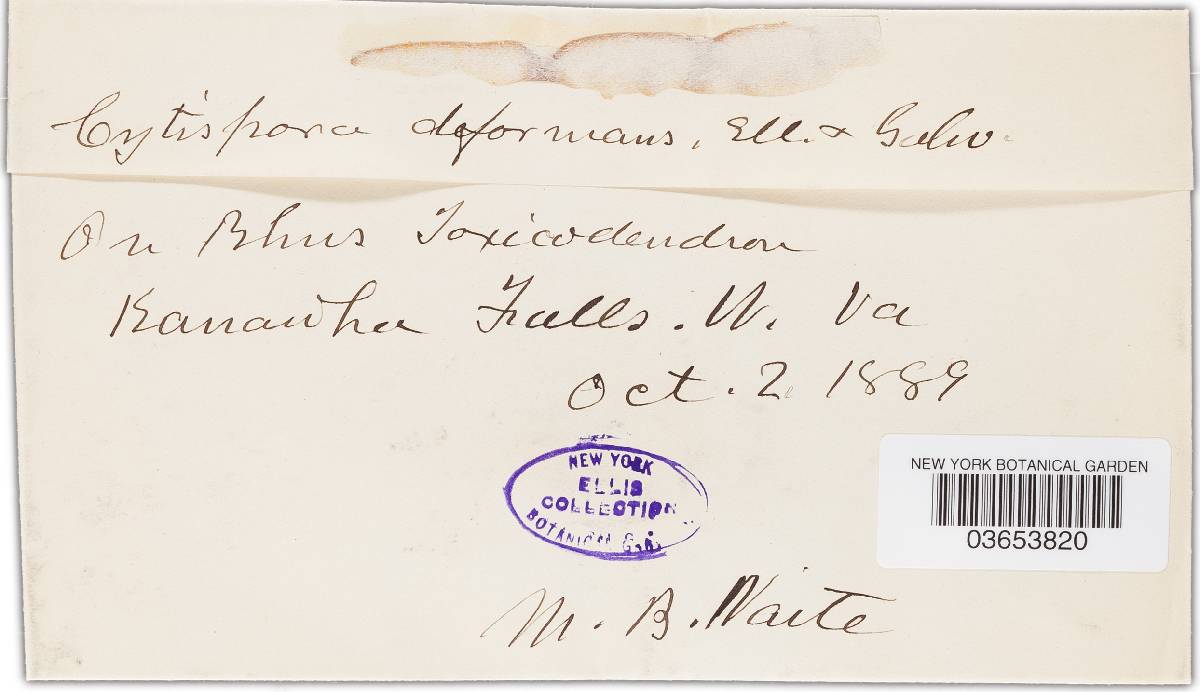 Cytispora deformans, Ell. & Galw.
On Rhus Toxicodendron
Kanawha Falls. W. Va
Oct. 2. 1889
NEW YORK
ELLIS
COLLECTION
BOTANICAL
NEW YORK BOTANICAL GARDEN
03653820
M. B. Waite